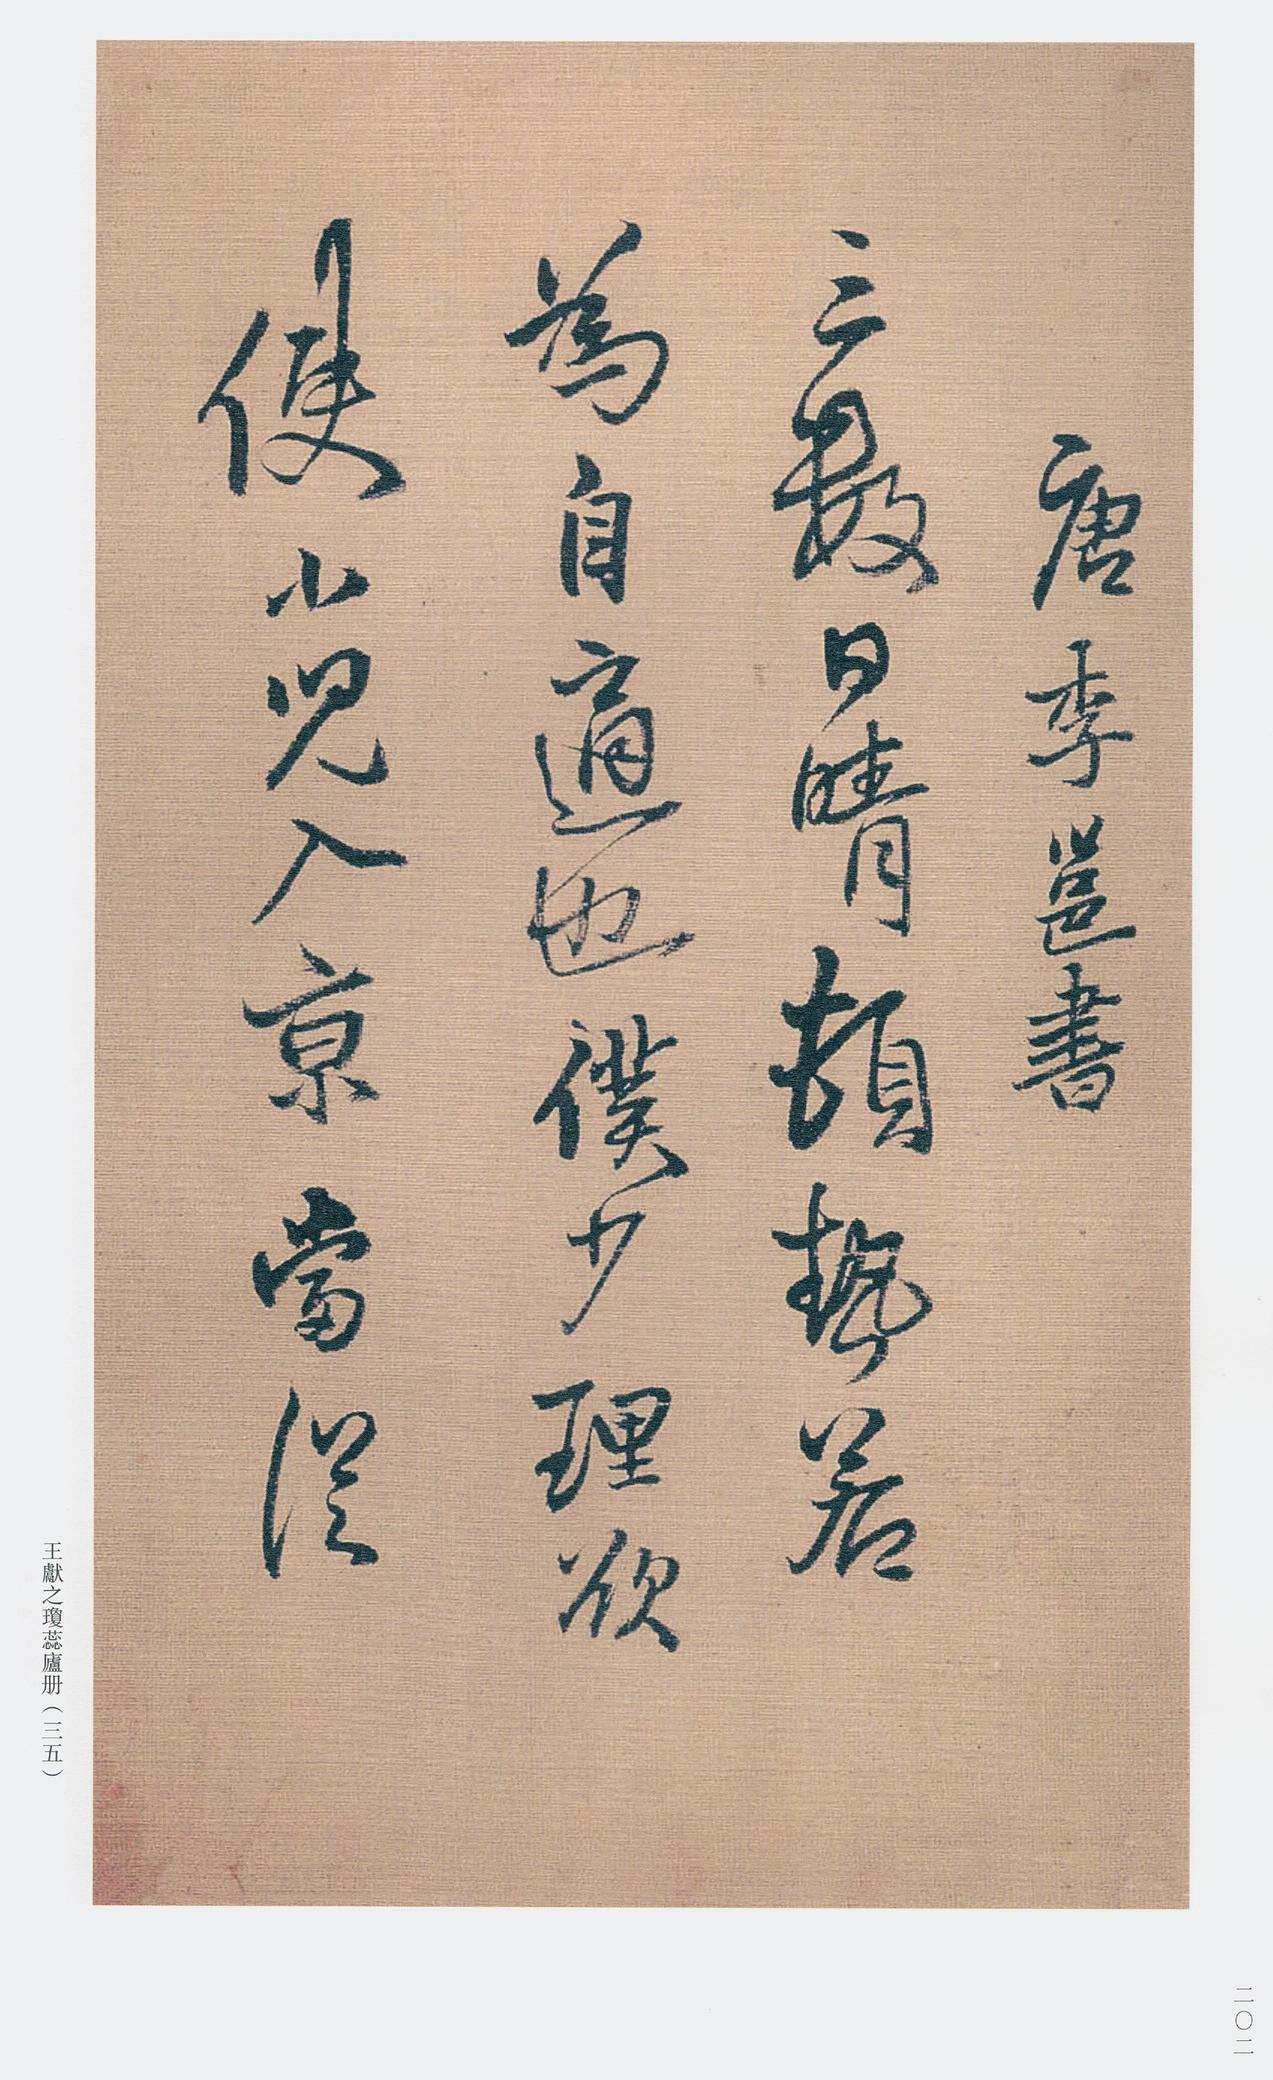 唐李邕書
三數日晴頓熱若
為自適也僕少理欲
使小兒入京當從
王獻之瓊蕊廬册（三五）
二〇二